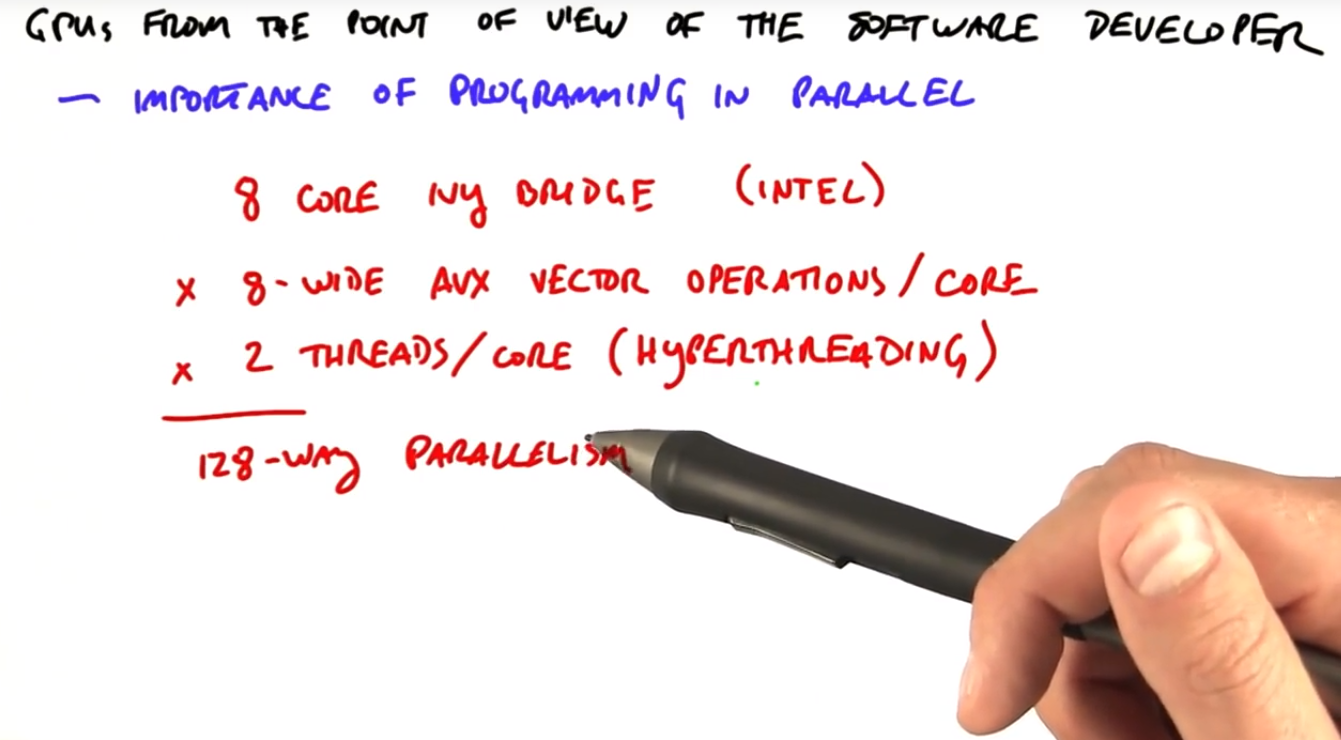 GPUs FROM THE POINT OF VIEW OF THE SOFTWARE DEVELOPER
— IMPORTANCE OF PROGRAMMING IN PARALLEL
8 CORE IVY BRIDGE (INTEL)
x 8-WIDE AVX VECTOR OPERATIONS/CORE
x 2 THREADS/CORE (HYPERTHREADING)
128-WAY PARALLELISM